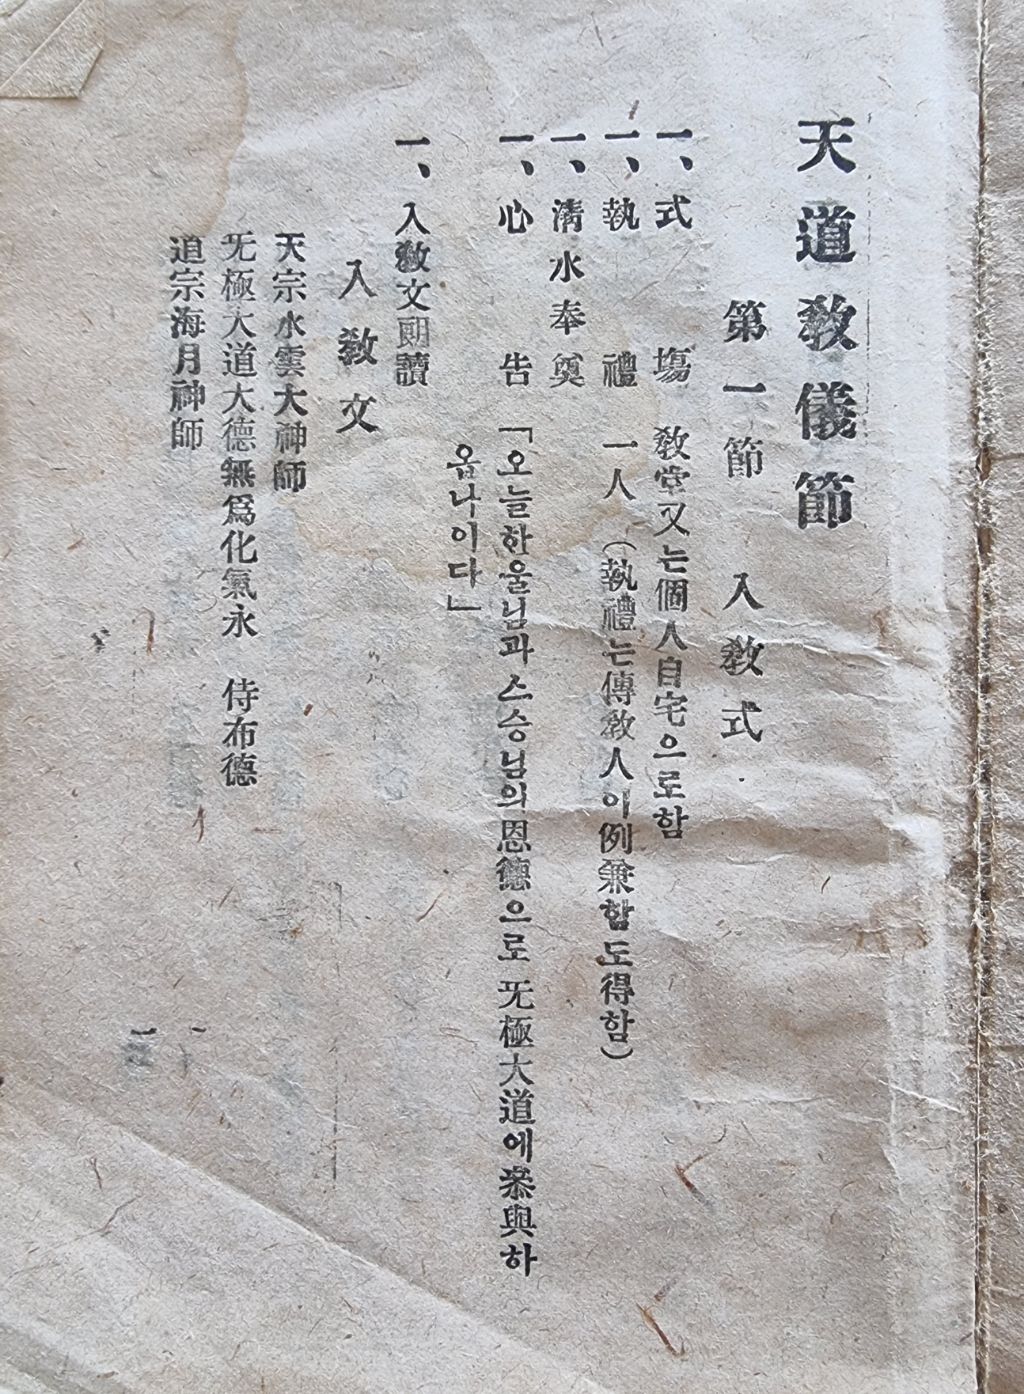 天道敎儀節
第一節 入敎式
一、式 塲 敎堂又는個人自宅으로함
一、執 禮 一人(執禮는傳敎人이例兼함도得함)
一、淸水奉奠
一、心 告 「오늘한울님과스승님의恩德으로无極大道에叅與하
옵나이다」
一、入敎文朗讀
入敎文
天宗水雲大神師
无極大道大德無爲化氣永 侍布德
道宗海月神師
一